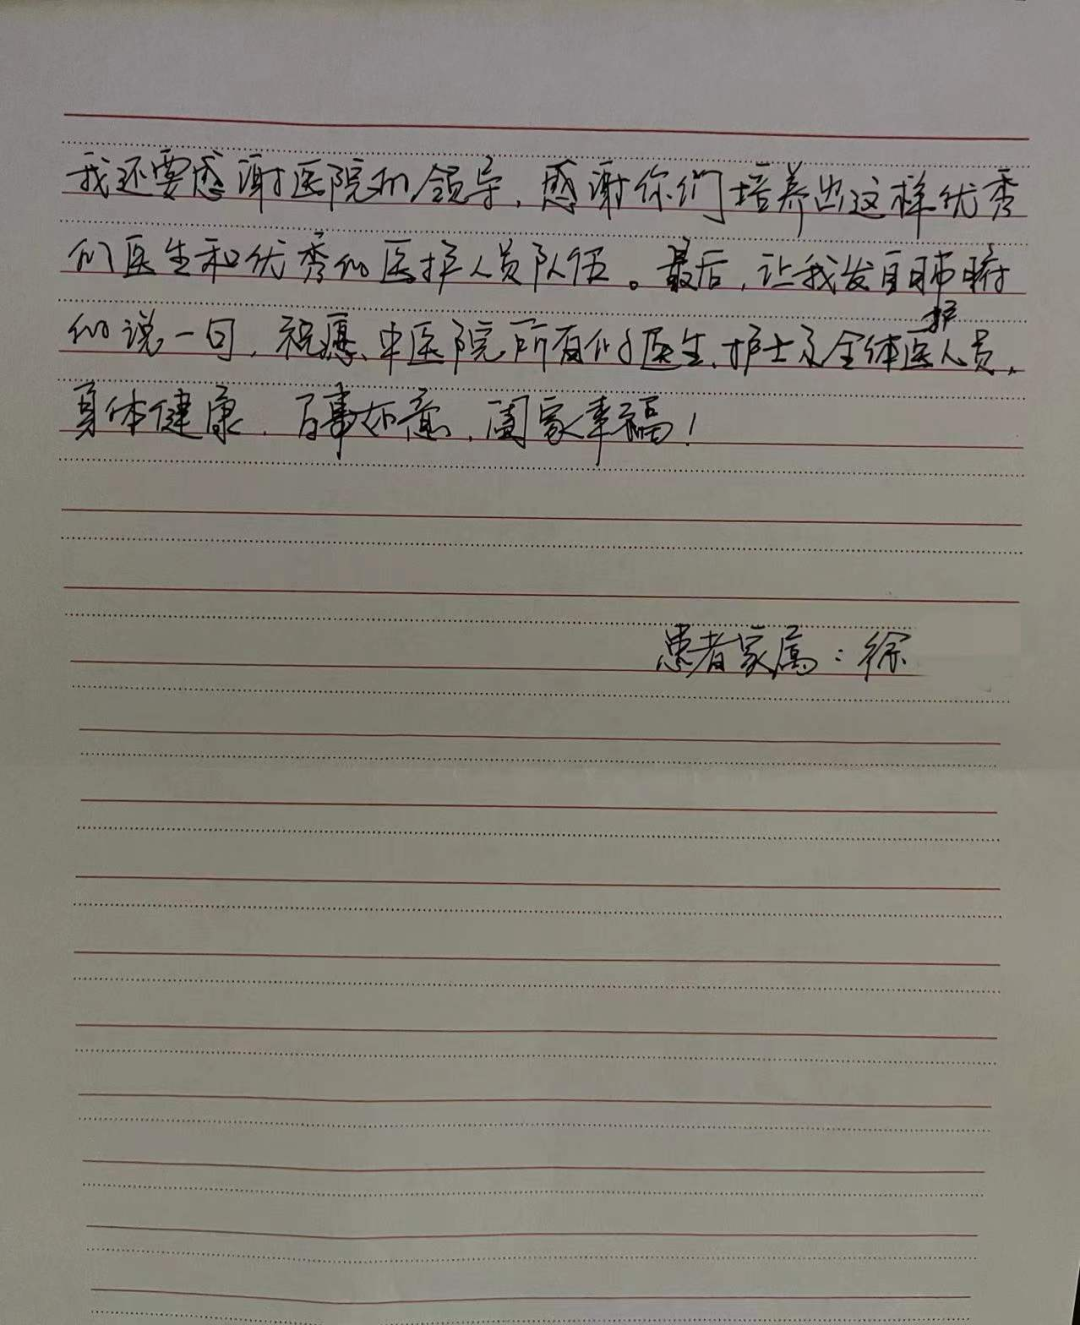 我还要感谢医院的领导，感谢你们培养出这样优秀
的医生和优秀的医护人员队伍。最后，让我发自肺腑
的说一句，祝愿、中医院所有的医生、护士及全体医护人员，
身体健康，百事如意，阖家幸福！
患者家属：徐